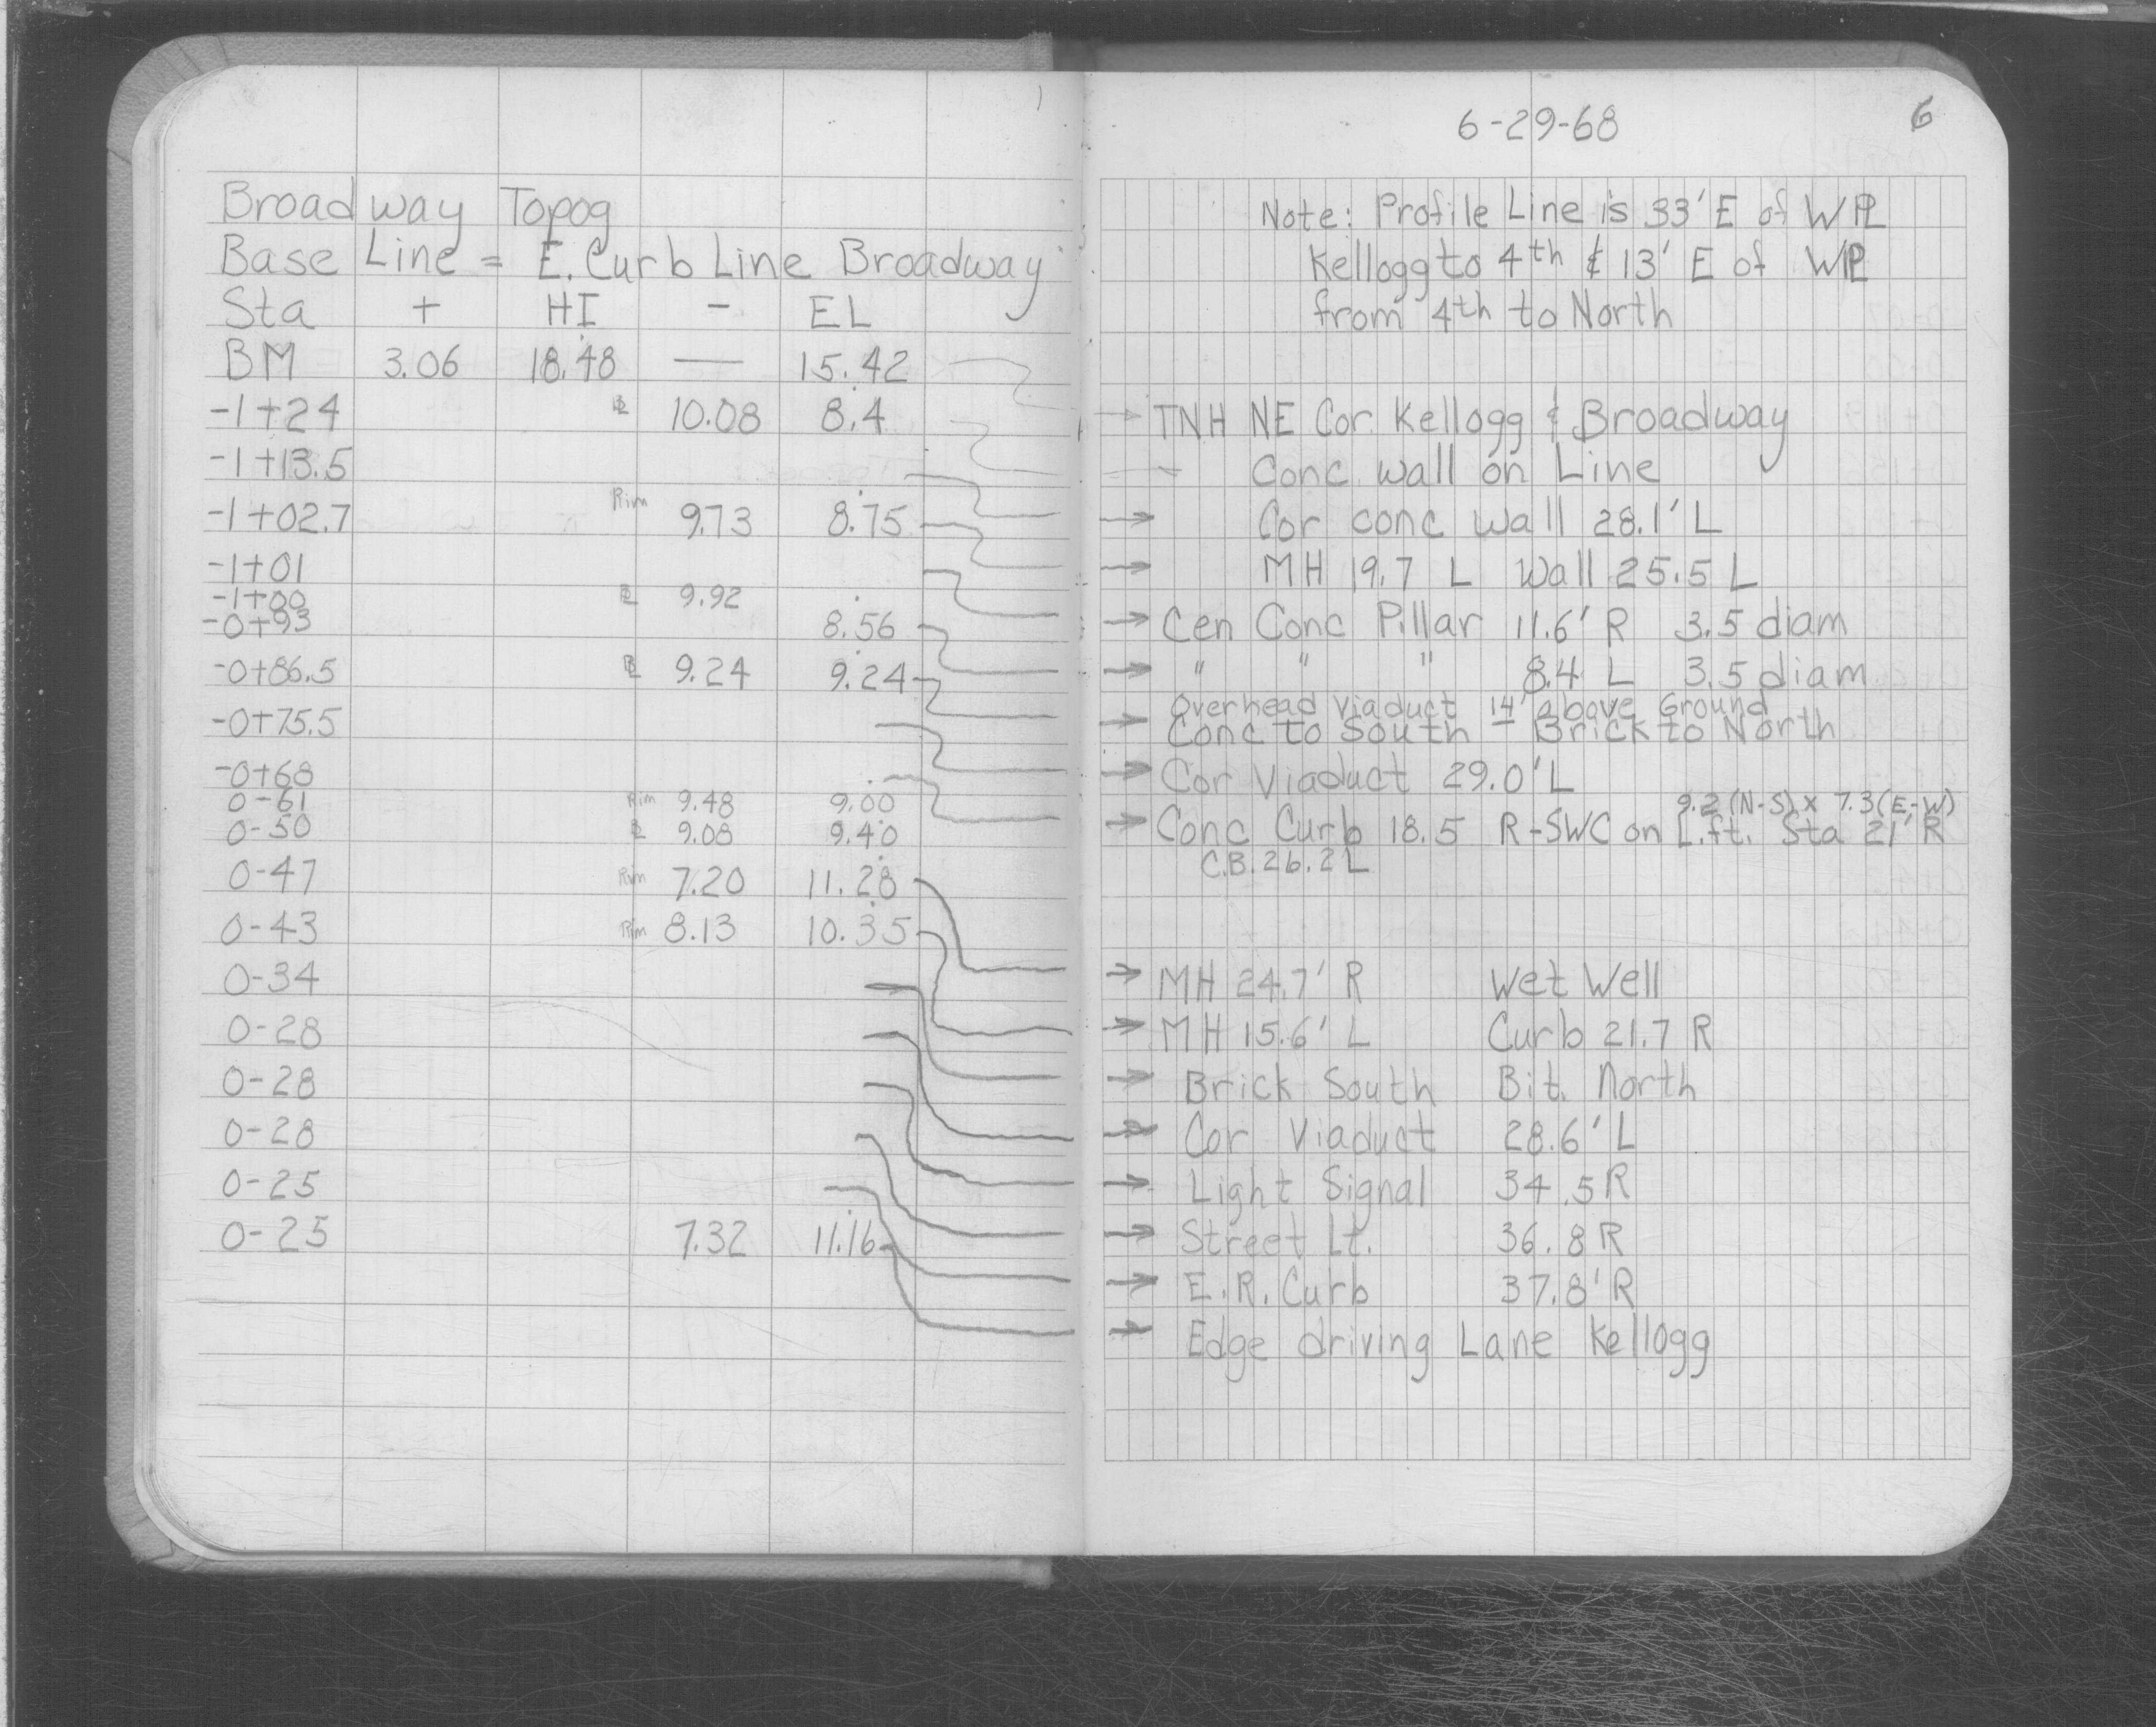 Broadway Topog
Base Line = E. Curb Line Broadway
Sta + HI - EL
BM 3.06 18.48 — 15.42
-1+24 10.08 8.4
-1+13.5
-1+02.7 Rim 9.73 8.75
-1+01
-1+00 9.92
-0+93 8.56
-0+86.5 9.24 9.24
-0+75.5
-0+68
0-61 Rim 9.48 9.00
0-50 9.08 9.40
0-47 Rim 7.20 11.28
0-43 Rim 8.13 10.35
0-34
0-28
0-28
0-28
0-25
0-25 7.32 11.16
6-29-68 6
Note: Profile Line is 33' E of W PL
Kellogg to 4th & 13' E of W PL
from 4th to North
→ TNH NE Cor. Kellogg & Broadway
Conc. wall on Line
→ Cor conc wall 28.1' L
→ MH 19.7 L Wall 25.5 L
→ Cen Conc Pillar 11.6' R 3.5 diam
→ " " " 8.4 L 3.5 diam
Overhead Viaduct 14' above Ground
→ Conc to South - Brick to North
→ Cor Viaduct 29.0' L
9.2 (N-S) x 7.3 (E-W)
→ Conc Curb 18.5 R-SWC on L.ft. Sta 21' R
C.B. 26.2 L
→ MH 24.7' R Wet Well
→ MH 15.6' L Curb 21.7 R
→ Brick South Bit. North
→ Cor Viaduct 28.6' L
→ Light Signal 34.5 R
→ Street Lt. 36.8 R
→ E.R. Curb 37.8' R
→ Edge driving Lane Kellogg